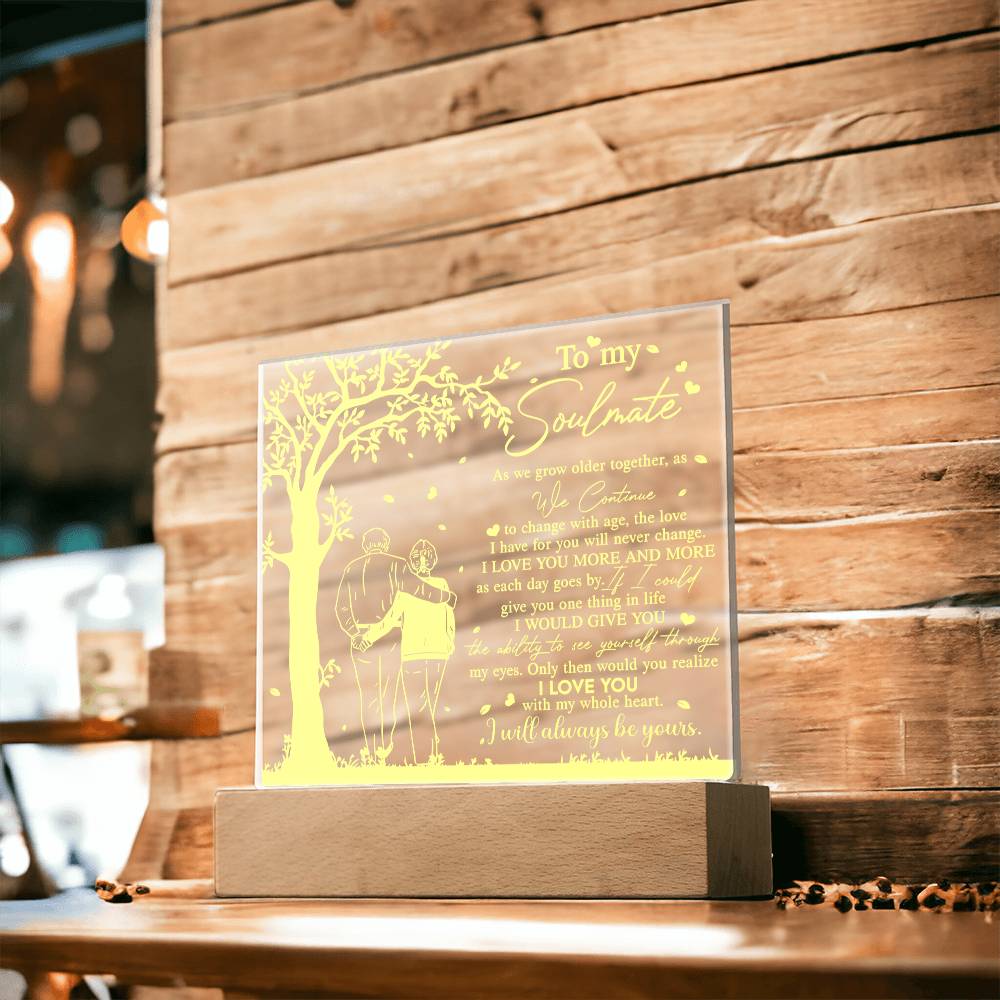 To my
Soulmate
As we grow older together, as
We Continue
to change with age, the love
I have for you will never change.
I LOVE YOU MORE AND MORE
as each day goes by. If I could
give you one thing in life
I WOULD GIVE YOU
the ability to see yourself through
my eyes. Only then would you realize
I LOVE YOU
with my whole heart.
I will always be yours.